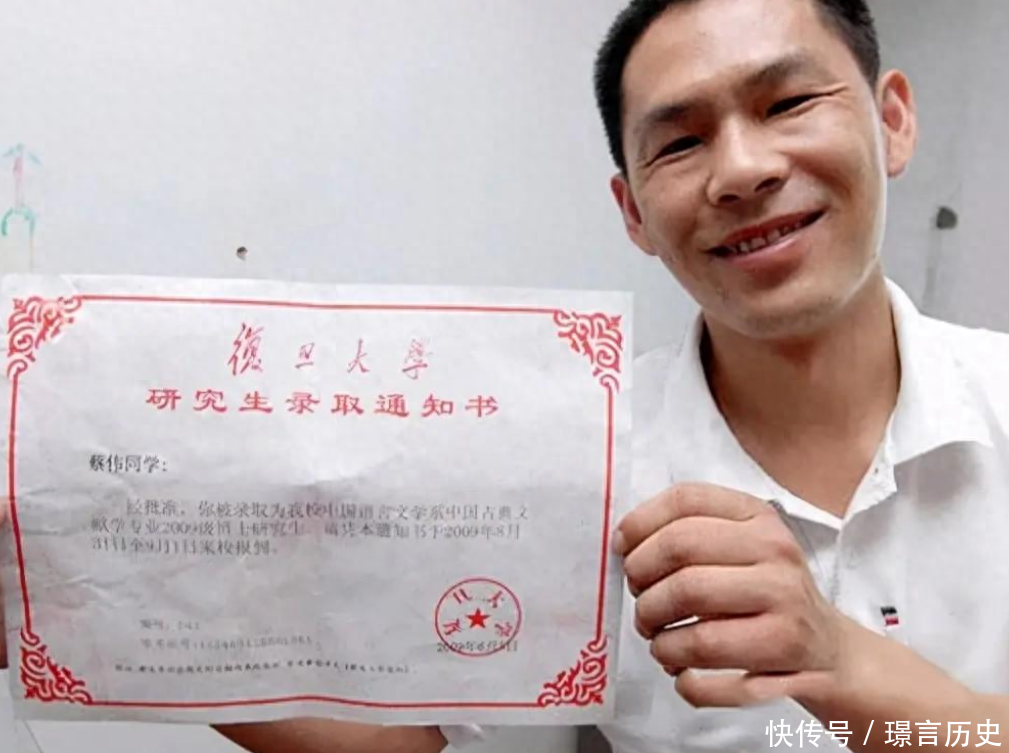 復旦大學
研究生录取通知书
蔡伟同学：
经批准，你被录取为我校中国语言文学系中国古典文
献学专业2009级博士研究生。请凭本通知书于2009年8月
31日至9月1日来校报到。
编号：141
2009年6月
快传号 / 璟言历史